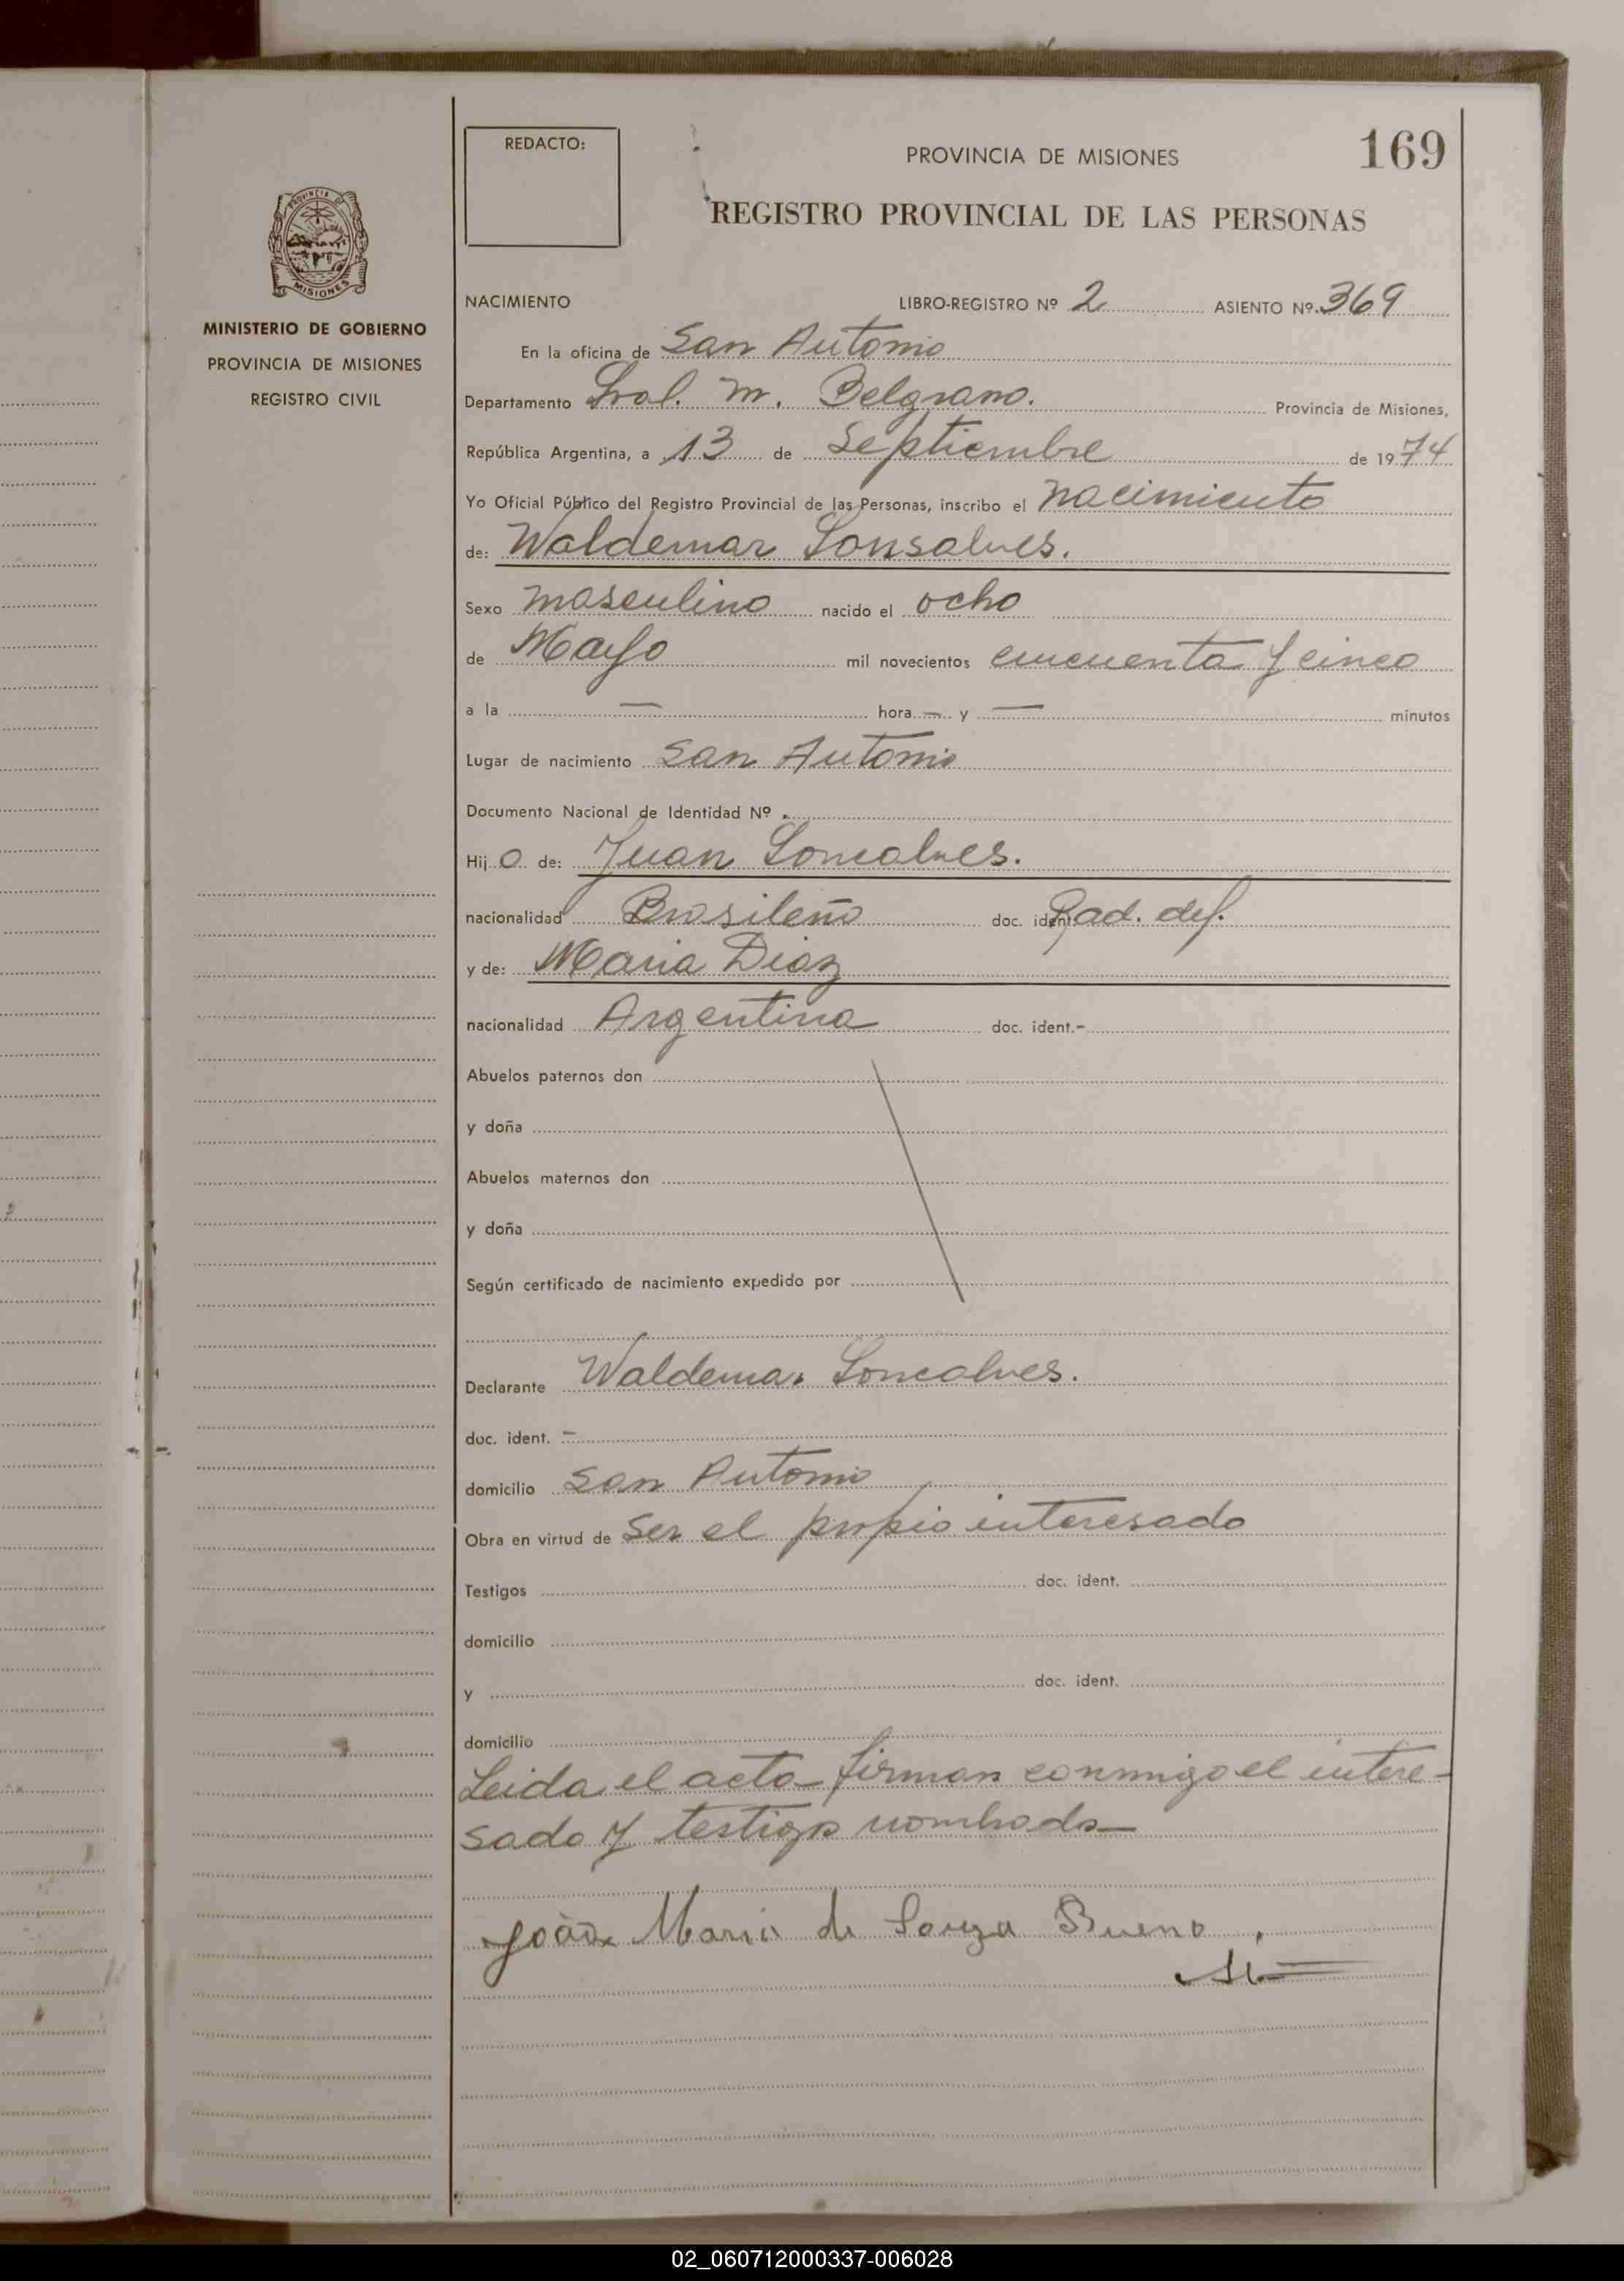 REDACTO:
PROVINCIA DE MISIONES
169
REGISTRO PROVINCIAL DE LAS PERSONAS
PROVINCIA DE
MISIONES
MINISTERIO DE GOBIERNO
PROVINCIA DE MISIONES
REGISTRO CIVIL
NACIMIENTO LIBRO-REGISTRO Nº 2 ASIENTO Nº 369
En la oficina de San Antonio
Departamento Gral. M. Belgrano. Provincia de Misiones,
República Argentina, a 13 de Septiembre de 1974
Yo Oficial Público del Registro Provincial de las Personas, inscribo el nacimiento
de: Waldemar Gonsalves.
Sexo masculino nacido el ocho
de Mayo mil novecientos cincuenta y cinco
a la — hora — y — minutos
Lugar de nacimiento San Antonio
Documento Nacional de Identidad Nº
Hij o de: Juan Goncalves.
nacionalidad Brasileño doc. ident. Rad. def.
y de: Maria Diaz
nacionalidad Argentina doc. ident.-
Abuelos paternos don
y doña
Abuelos maternos don
y doña
Según certificado de nacimiento expedido por
Declarante Waldemar Goncalves.
doc. ident. -
domicilio San Antonio
Obra en virtud de Ser el propio interesado
Testigos doc. ident.
domicilio
y doc. ident.
domicilio
Leida el acta firman conmigo el intere-
sado y testigo nombrado
João Maria de Souza Bueno
02_060712000337-006028